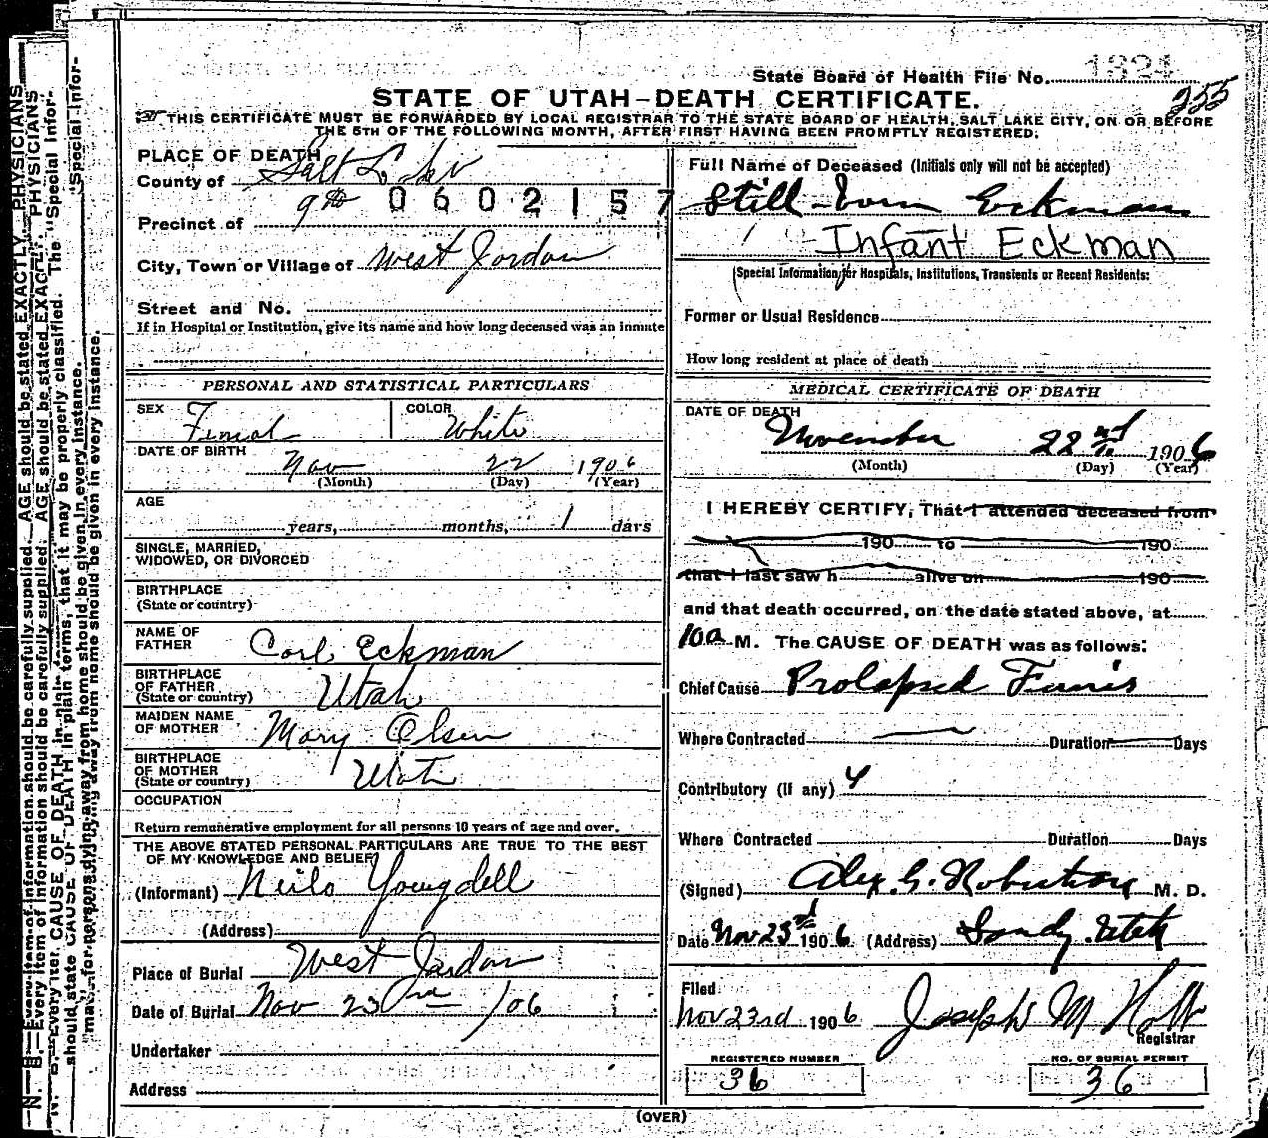 State Board of Health File No. 1324
255
STATE OF UTAH—DEATH CERTIFICATE.
THIS CERTIFICATE MUST BE FORWARDED BY LOCAL REGISTRAR TO THE STATE BOARD OF HEALTH, SALT LAKE CITY, ON OR BEFORE
THE 5TH OF THE FOLLOWING MONTH, AFTER FIRST HAVING BEEN PROMPTLY REGISTERED.
PLACE OF DEATH
County of Salt Lake
Precinct of 9th
0602157
City, Town or Village of West Jordan
Street and No.
If in Hospital or Institution, give its name and how long deceased was an inmate
Full Name of Deceased (Initials only will not be accepted)
Still-born Eckman
Infant Eckman
(Special Information for Hospitals, Institutions, Transients or Recent Residents:
Former or Usual Residence
How long resident at place of death
PERSONAL AND STATISTICAL PARTICULARS
SEX Femal
COLOR White
DATE OF BIRTH
Nov 22 1906
(Month) (Day) (Year)
AGE
years, months, 1 days
SINGLE, MARRIED,
WIDOWED, OR DIVORCED
BIRTHPLACE
(State or country)
NAME OF
FATHER Carl Eckman
BIRTHPLACE
OF FATHER
(State or country) Utah
MAIDEN NAME
OF MOTHER Mary Olsen
BIRTHPLACE
OF MOTHER
(State or country) Utah
OCCUPATION
Return remunerative employment for all persons 10 years of age and over.
THE ABOVE STATED PERSONAL PARTICULARS ARE TRUE TO THE BEST
OF MY KNOWLEDGE AND BELIEF
(Informant) Neils Youngdell
(Address)
Place of Burial West Jordan
Date of Burial Nov 23rd /06
Undertaker
Address
MEDICAL CERTIFICATE OF DEATH
DATE OF DEATH
November 22nd 1906
(Month) (Day) (Year)
I HEREBY CERTIFY, That I attended deceased from
190 to 190
that I last saw h alive on 190
and that death occurred, on the date stated above, at
10a M. The CAUSE OF DEATH was as follows:
Chief Cause Prolapsed Funis
Where Contracted Duration Days
Contributory (If any)
Where Contracted Duration Days
(Signed) Alex. G. Robertson M. D.
Date Nov 23rd 1906 (Address) Sandy. Utah
Filed
Nov 23rd 1906 Joseph M Holt
Registrar
REGISTERED NUMBER
36
NO. OF BURIAL PERMIT
36
(OVER)
N. B.—Every item of information should be carefully supplied. AGE should be stated EXACTLY. PHYSICIANS
should state CAUSE OF DEATH in plain terms, that it may be properly classified. The "Special Infor-
mation" for persons dying away from home should be given in every instance.